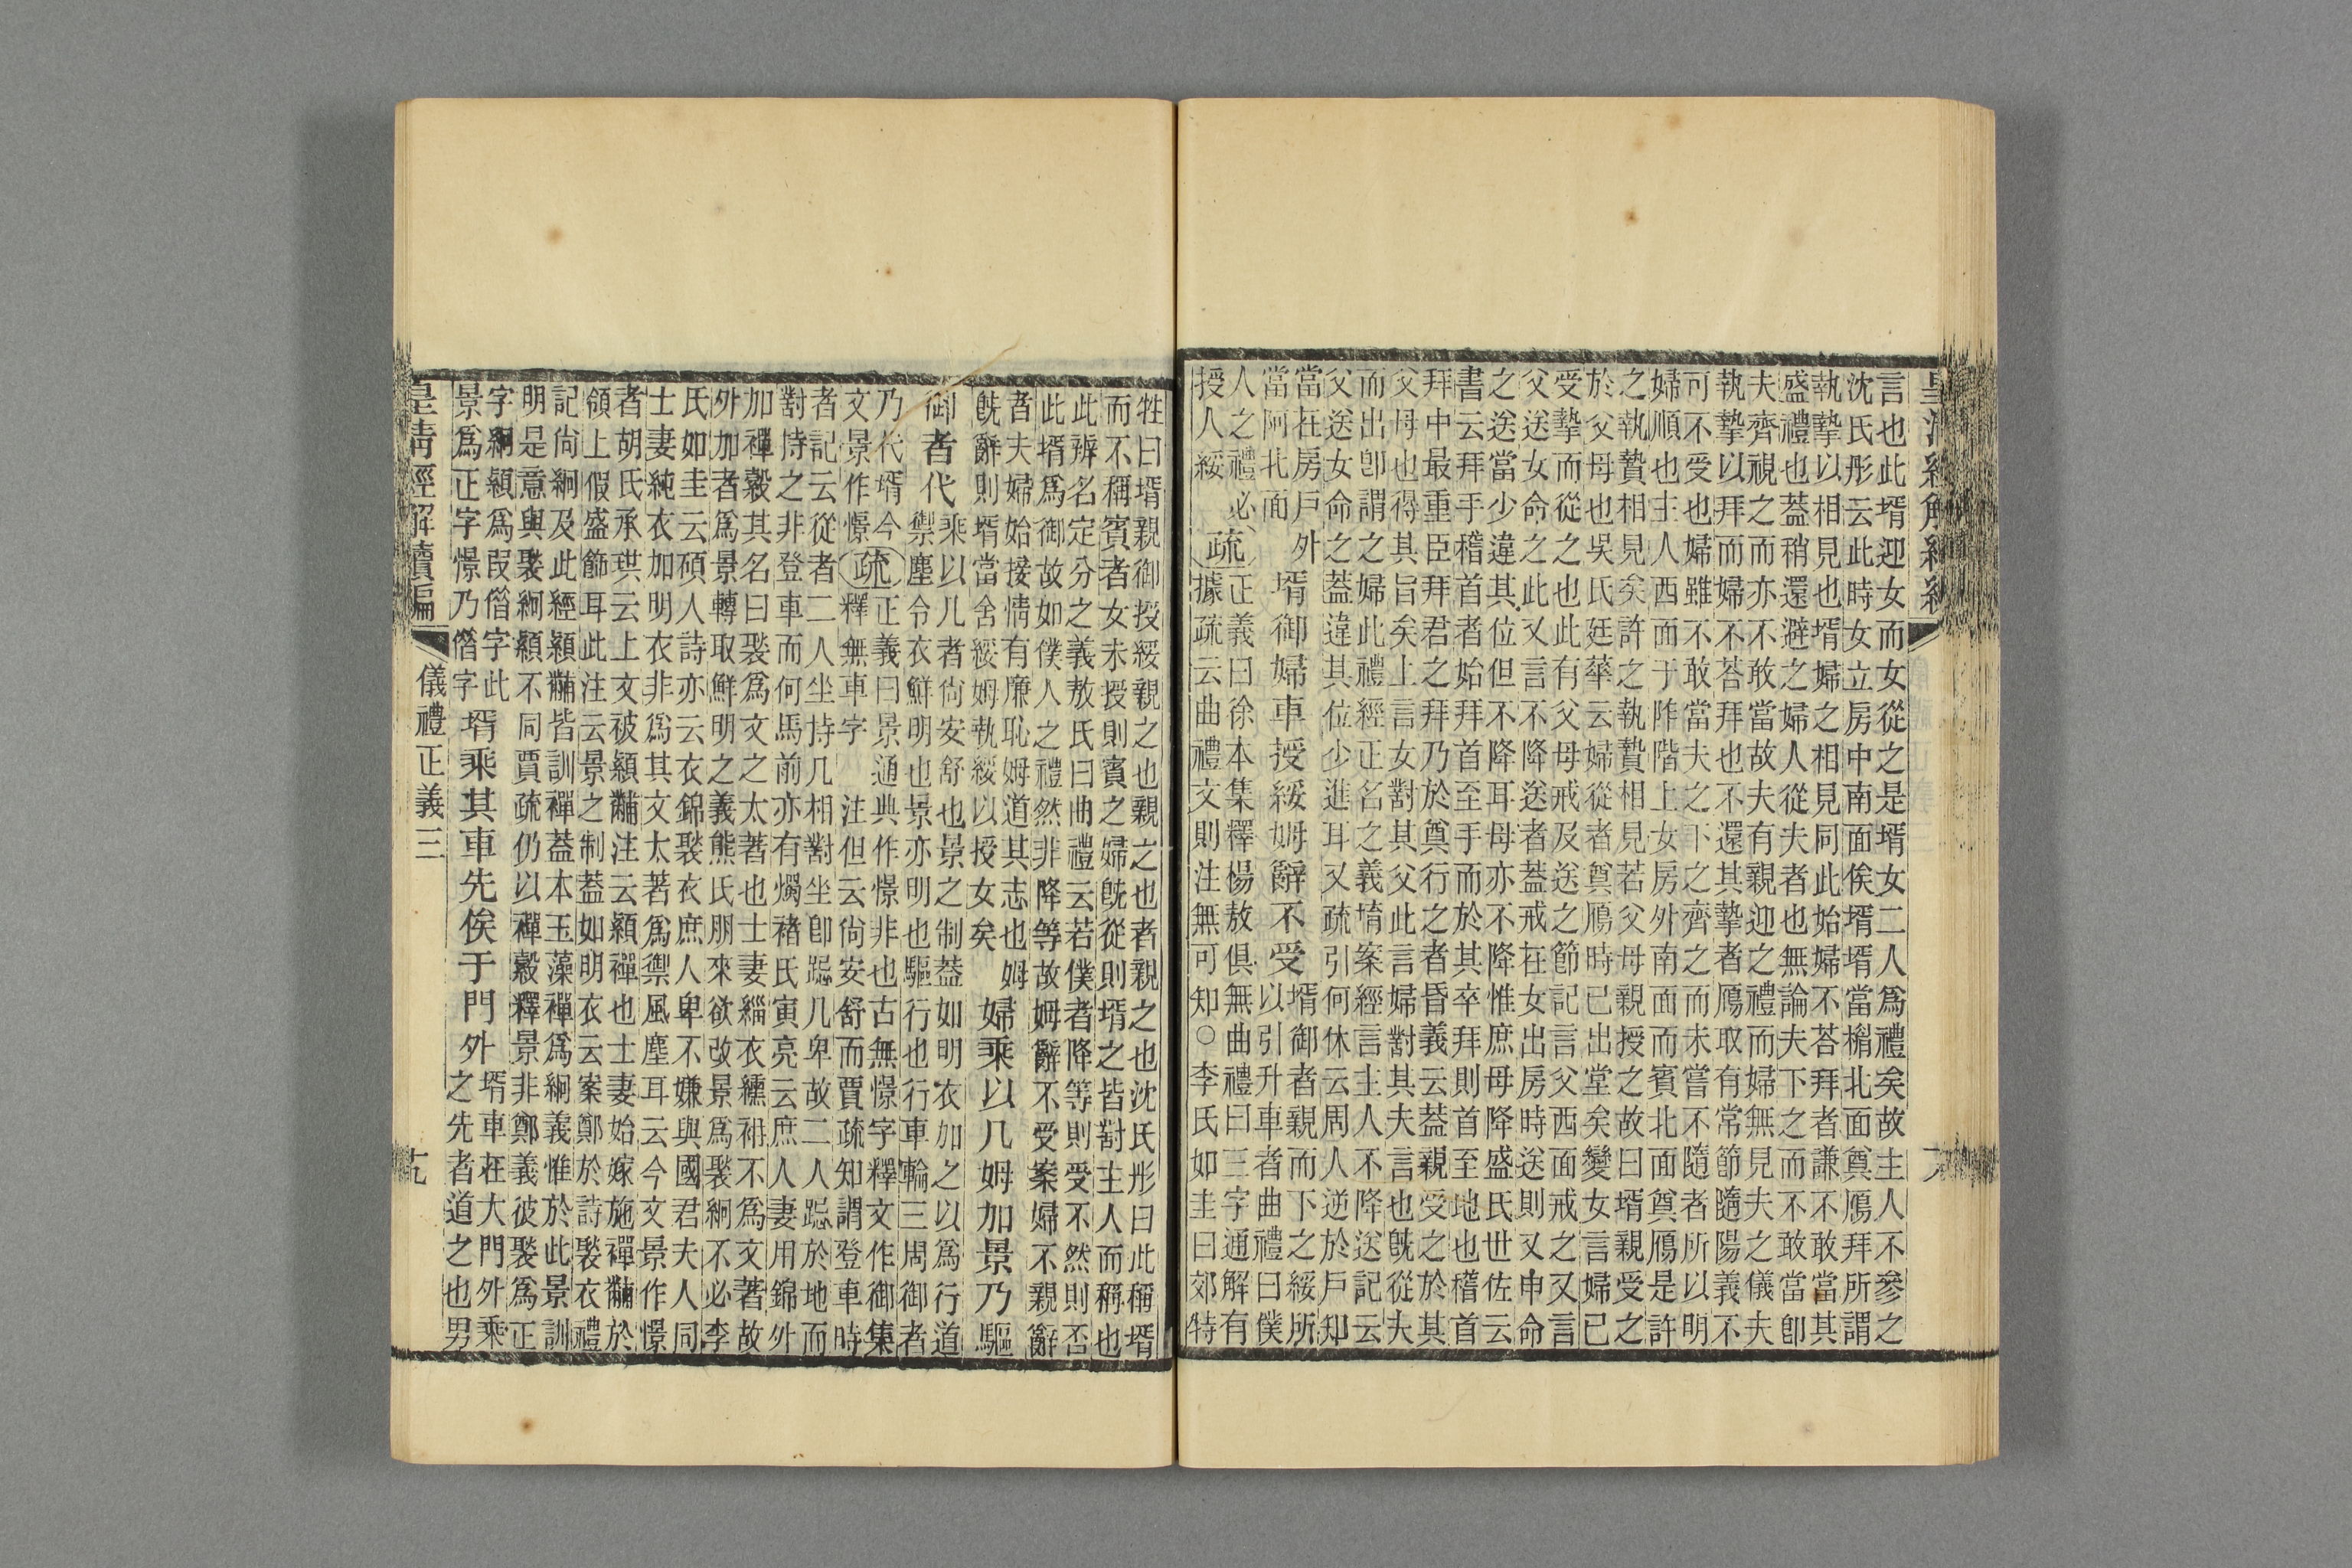 言也此壻迎女而女從之是壻女二人爲禮矣故主人不參之
沈氏彤云此時女立房中南面俟壻壻當楣北面奠鴈拜所謂
執摯以相見也壻婦之相見同此始婦不荅拜者謙不敢當其
盛禮也蓋稍還避之婦人從夫者也無論夫下之而不敢當卽
夫齊視之而亦不敢當故夫有親迎之禮而婦無見夫之儀夫
執摯以拜而婦不荅拜也不還其摯者鴈取有常節隨陽義不
可不受也婦雖不敢當夫之下之齊之而未嘗不隨者所以明
婦順也主人西面于阼階上女房外南面而賓北面奠鴈是許
之執贄相見矣許之執贄相見若父母親授之故曰壻親受之
於父母也吳氏廷華云婦從者奠鴈時已出堂矣變女言婦已
受摯而從之也此有父母戒及送之節記言父西面戒之又言
父送女命之此又言不降送者蓋戒在女出房時送則又申命
之送當少違其位但不降耳母亦不降惟庶母降盛氏世佐云
書云拜手稽首者始拜首至手而於其卒拜則首至地也稽首
拜中最重臣拜君之拜乃於奠行之者昏義云蓋親受之於其
父母也得其旨矣上言女對其父此言婦對其夫言也旣從夫
而出卽謂之婦此禮經正名之義堉案經言主人不降送記云
父送女命之蓋違其位少進耳又疏引何休云周人逆於戶知
當在房戶外 壻御婦車授綏姆辭不受 壻御者親而下之綏所
當阿北面 以引升車者曲禮曰僕
人之禮必 疏 正義曰徐本集釋楊敖俱無曲禮曰三字通解有
授人綏 據疏云曲禮文則注無可知○李氏如圭曰郊特
牲曰壻親御授綏親之也親之也者親之也沈氏彤曰此稱壻
而不稱賓者女未授則賓之婦旣從則壻之皆對主人而稱也
此辨名定分之義敖氏曰曲禮云若僕者降等則受不然則否
此壻爲御故如僕人之禮然非降等故姆辭不受案婦不親辭
者夫婦始接情有廉恥姆道其志也姆
旣辭則壻當舍綏姆執綏以授女矣 婦乘以几姆加景乃驅
御者代 乘以几者尙安舒也景之制蓋如明衣加之以爲行道
禦塵令衣鮮明也景亦明也驅行也行車輪三周御者
乃代壻今 疏 正義曰景通典作憬非也古無憬字釋文作御集
文景作憬 釋無車字 注但云尙安舒而賈疏知謂登車時
者記云從者二人坐持几相對坐卽跽几卑故二人跽於地而
對持之非登車而何馬前亦有燭褚氏寅亮云庶人妻用錦外
加禪縠其名曰褧爲文之太著也士妻緇衣纁袡不爲文著故
外加者爲景轉取鮮明之義熊氏朋來欲改景爲褧絅不必李
氏如圭云碩人詩亦云衣錦褧衣庶人卑不嫌與國君夫人同
士妻純衣加明衣非爲其文太著爲禦風塵耳云今文景作憬
者胡氏承珙云上文被纇黼注云纇禪也士妻始嫁施禪黼於
領上假盛飾耳此注云景之制蓋如明衣云案鄭於詩褧衣禮
記尙絅及此經纇黼皆訓禪蓋本玉藻禪爲絅義惟於此景訓
明是意與褧絅纇不同賈疏仍以禪縠釋景非鄭義彼褧爲正
字絅纇爲叚僭字此
景爲正字憬乃僭字 壻乘其車先俟于門外 壻車在大門外乘
之先者道之也男
皇清經解續編 儀禮正義三